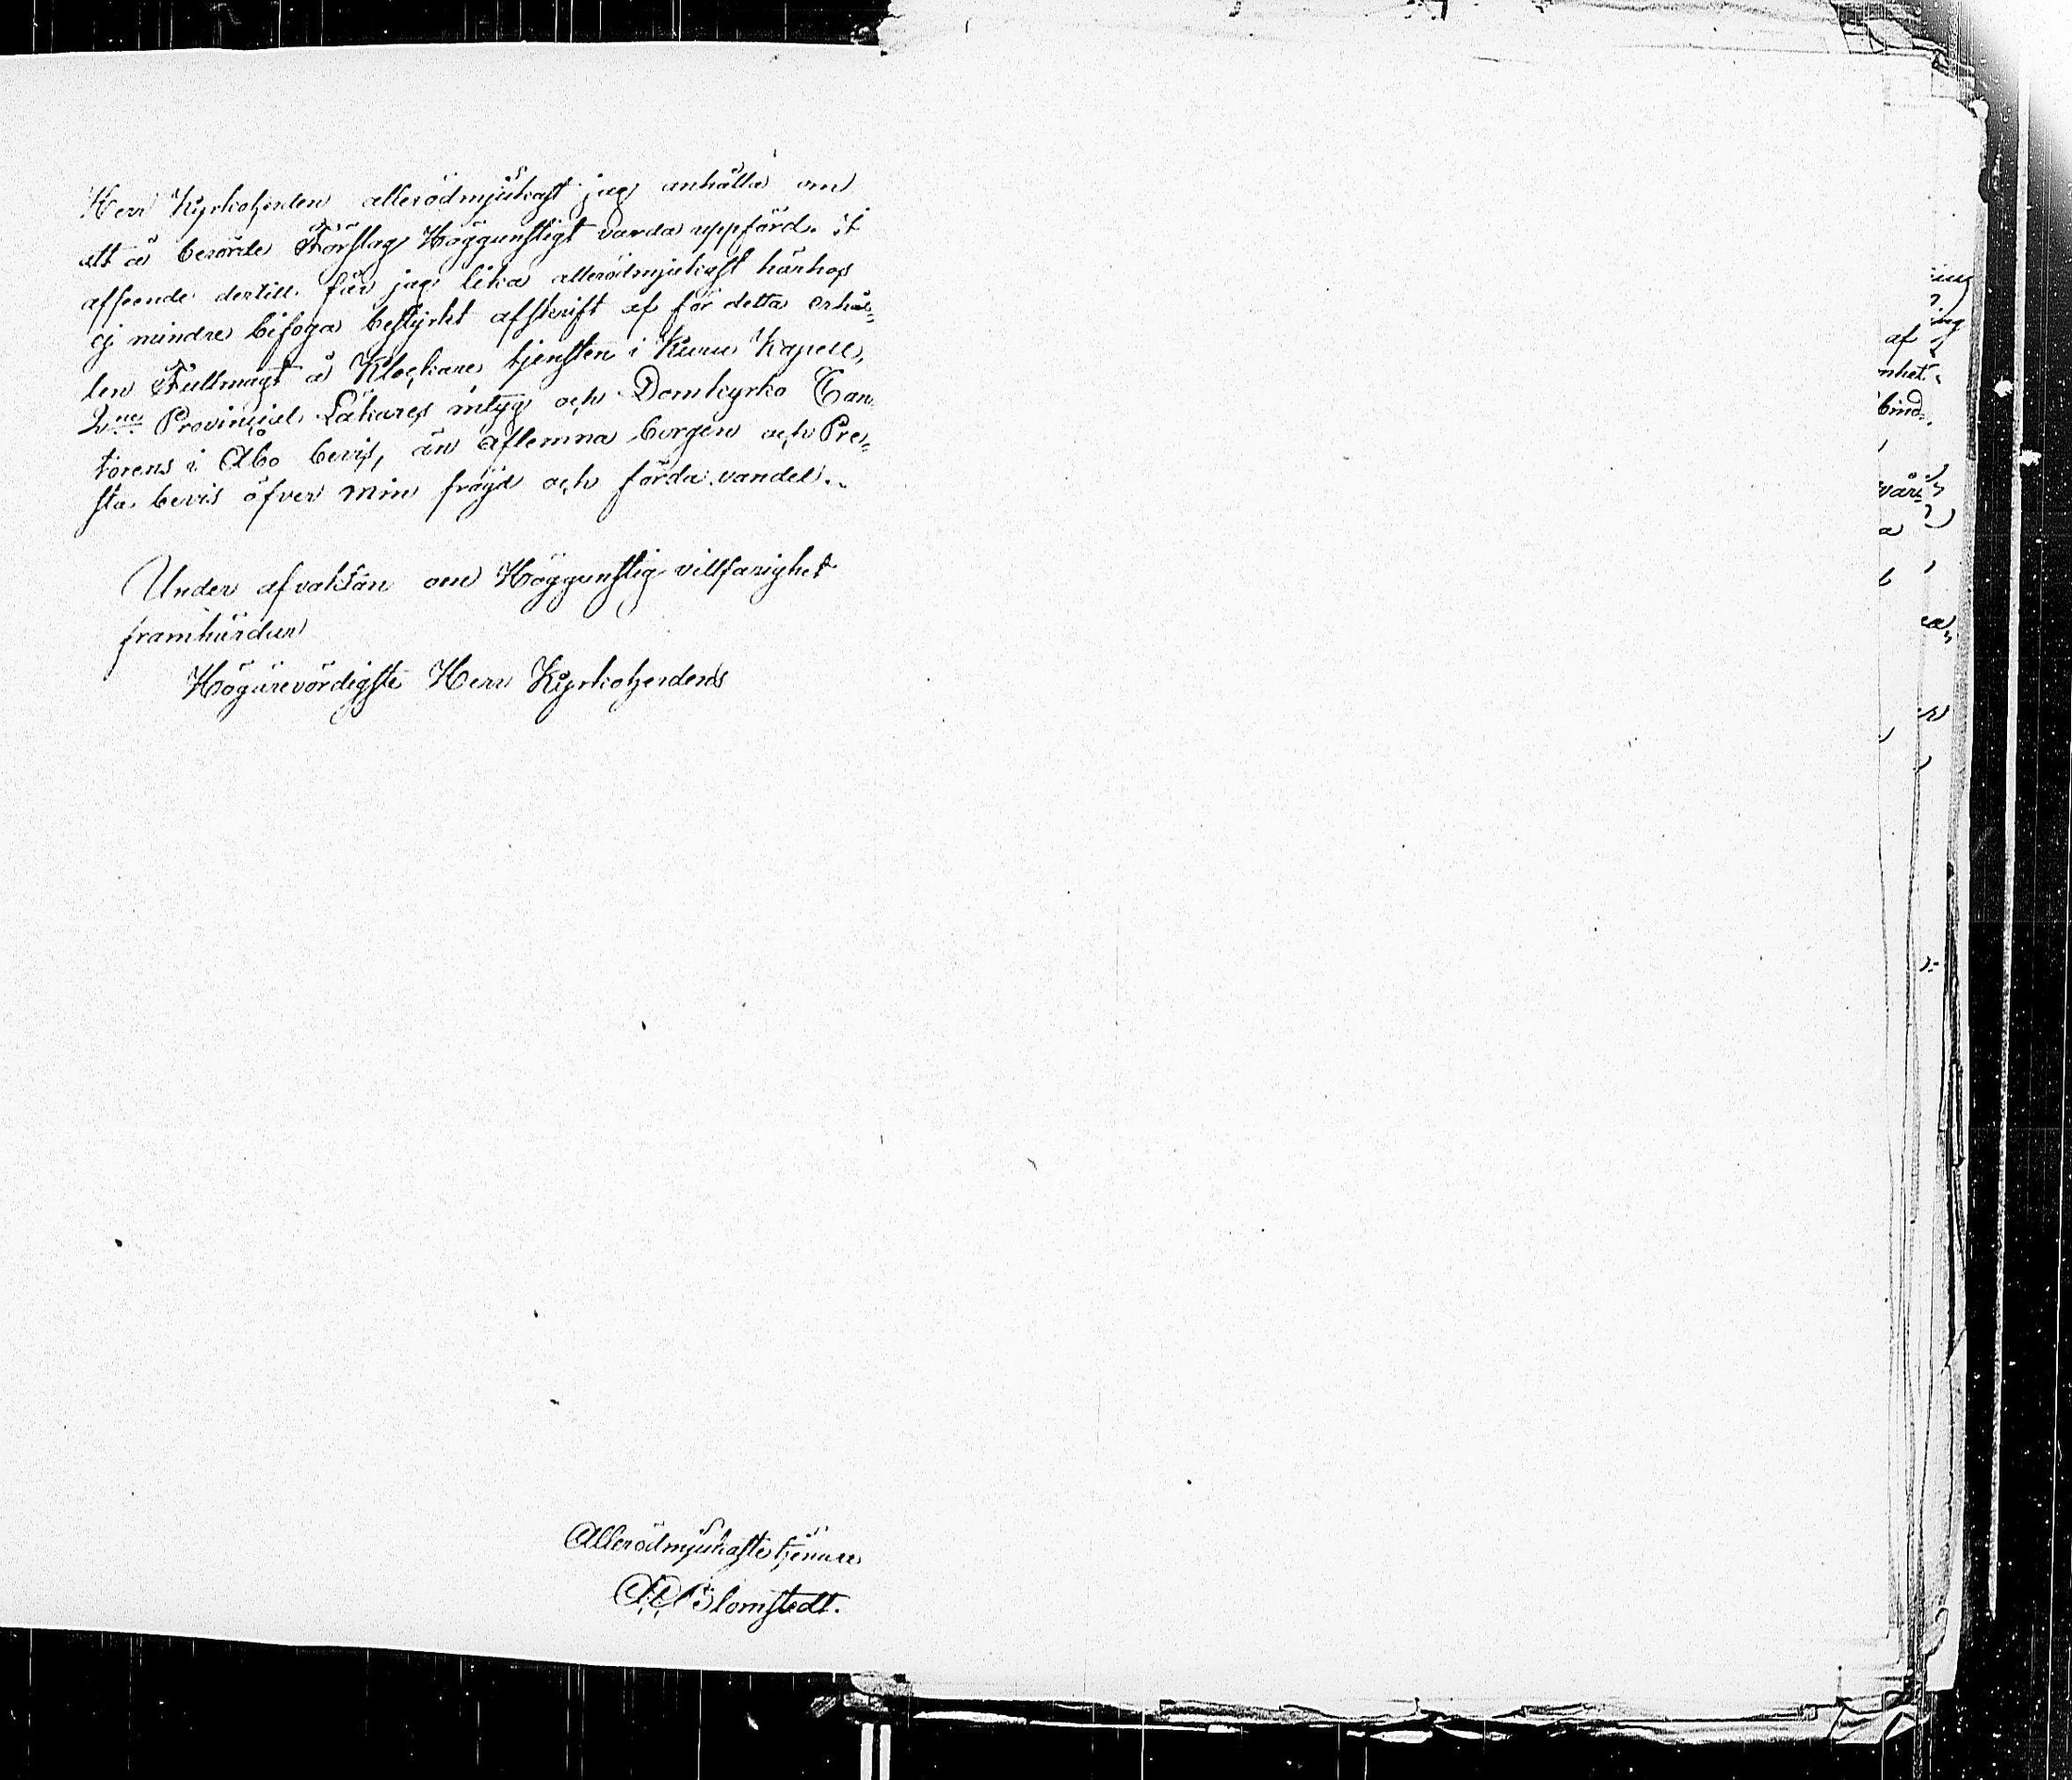 Herr Kyrkoherden allerödmjukast jag anhålla om
att å berörde Förslag Höggunstigt varda uppförd. I
afseende dertill får jag lika allerödmjukast härhos
ej mindre bifoga bestyrkt afskrift af för detta erhål-
len Fullmagt å Klockare tjensten i Kuru Kapell,
2ne Provincial Läkares intyg och Domkyrko Can-
torens i Åbo bevis, än aflemna borgen och Pre-
sta bevis öfver min frägd och förda vandel.
Under afvaktan om Höggunstig villfarighet
framhärdar
Högärevördigste Herr Kyrkoherdens
Allerödmjukaste tjenare
Blomstedt.
af
nhet
bind-